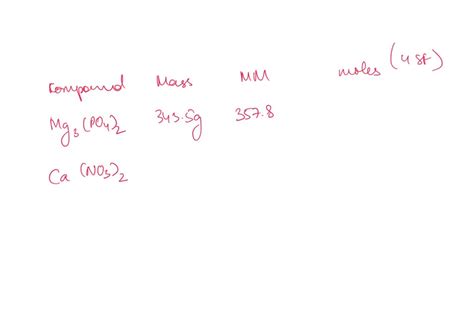 Compound Mass MM moles (4 SF)
Mg₃(PO₄)₂ 345.5g 357.8
Ca (NO₃)₂